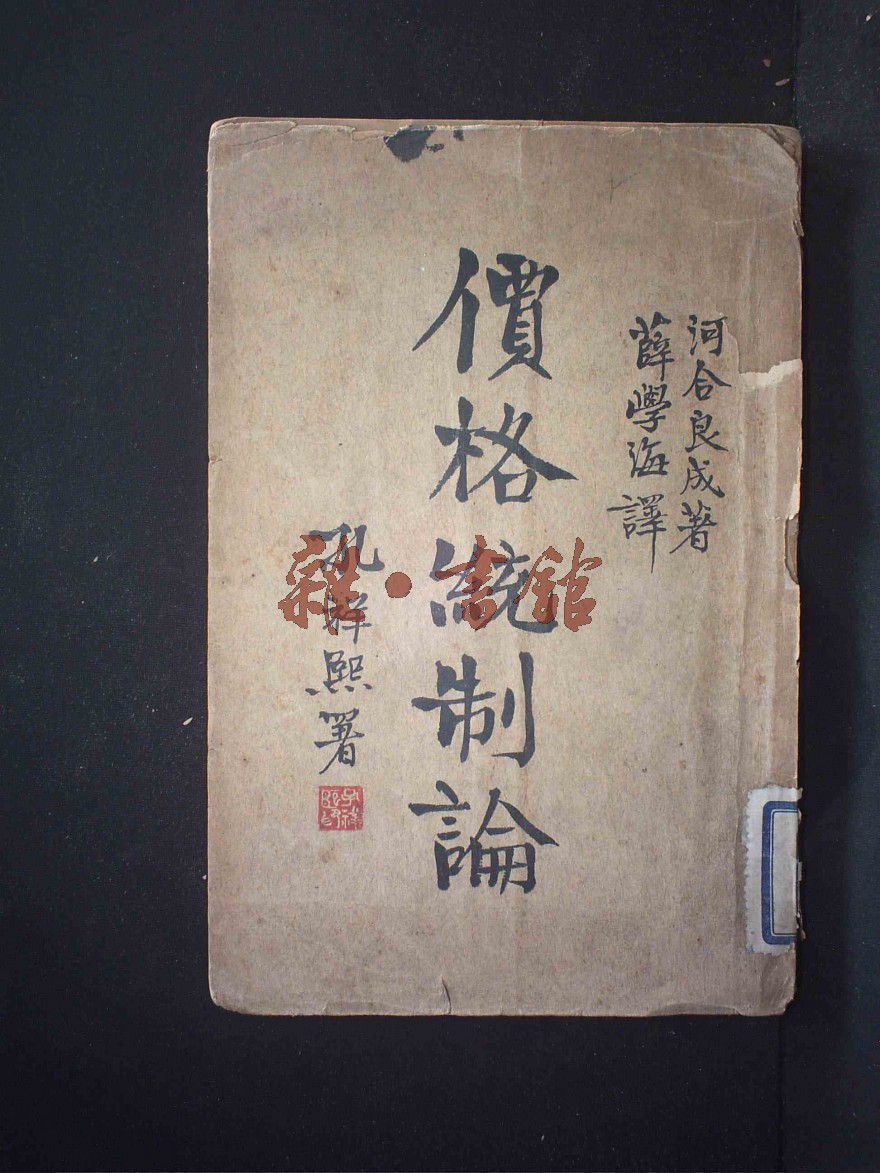 河合良成著
薛學海譯
價格統制論
孔祥熙署
孔祥熙印
雜·書館